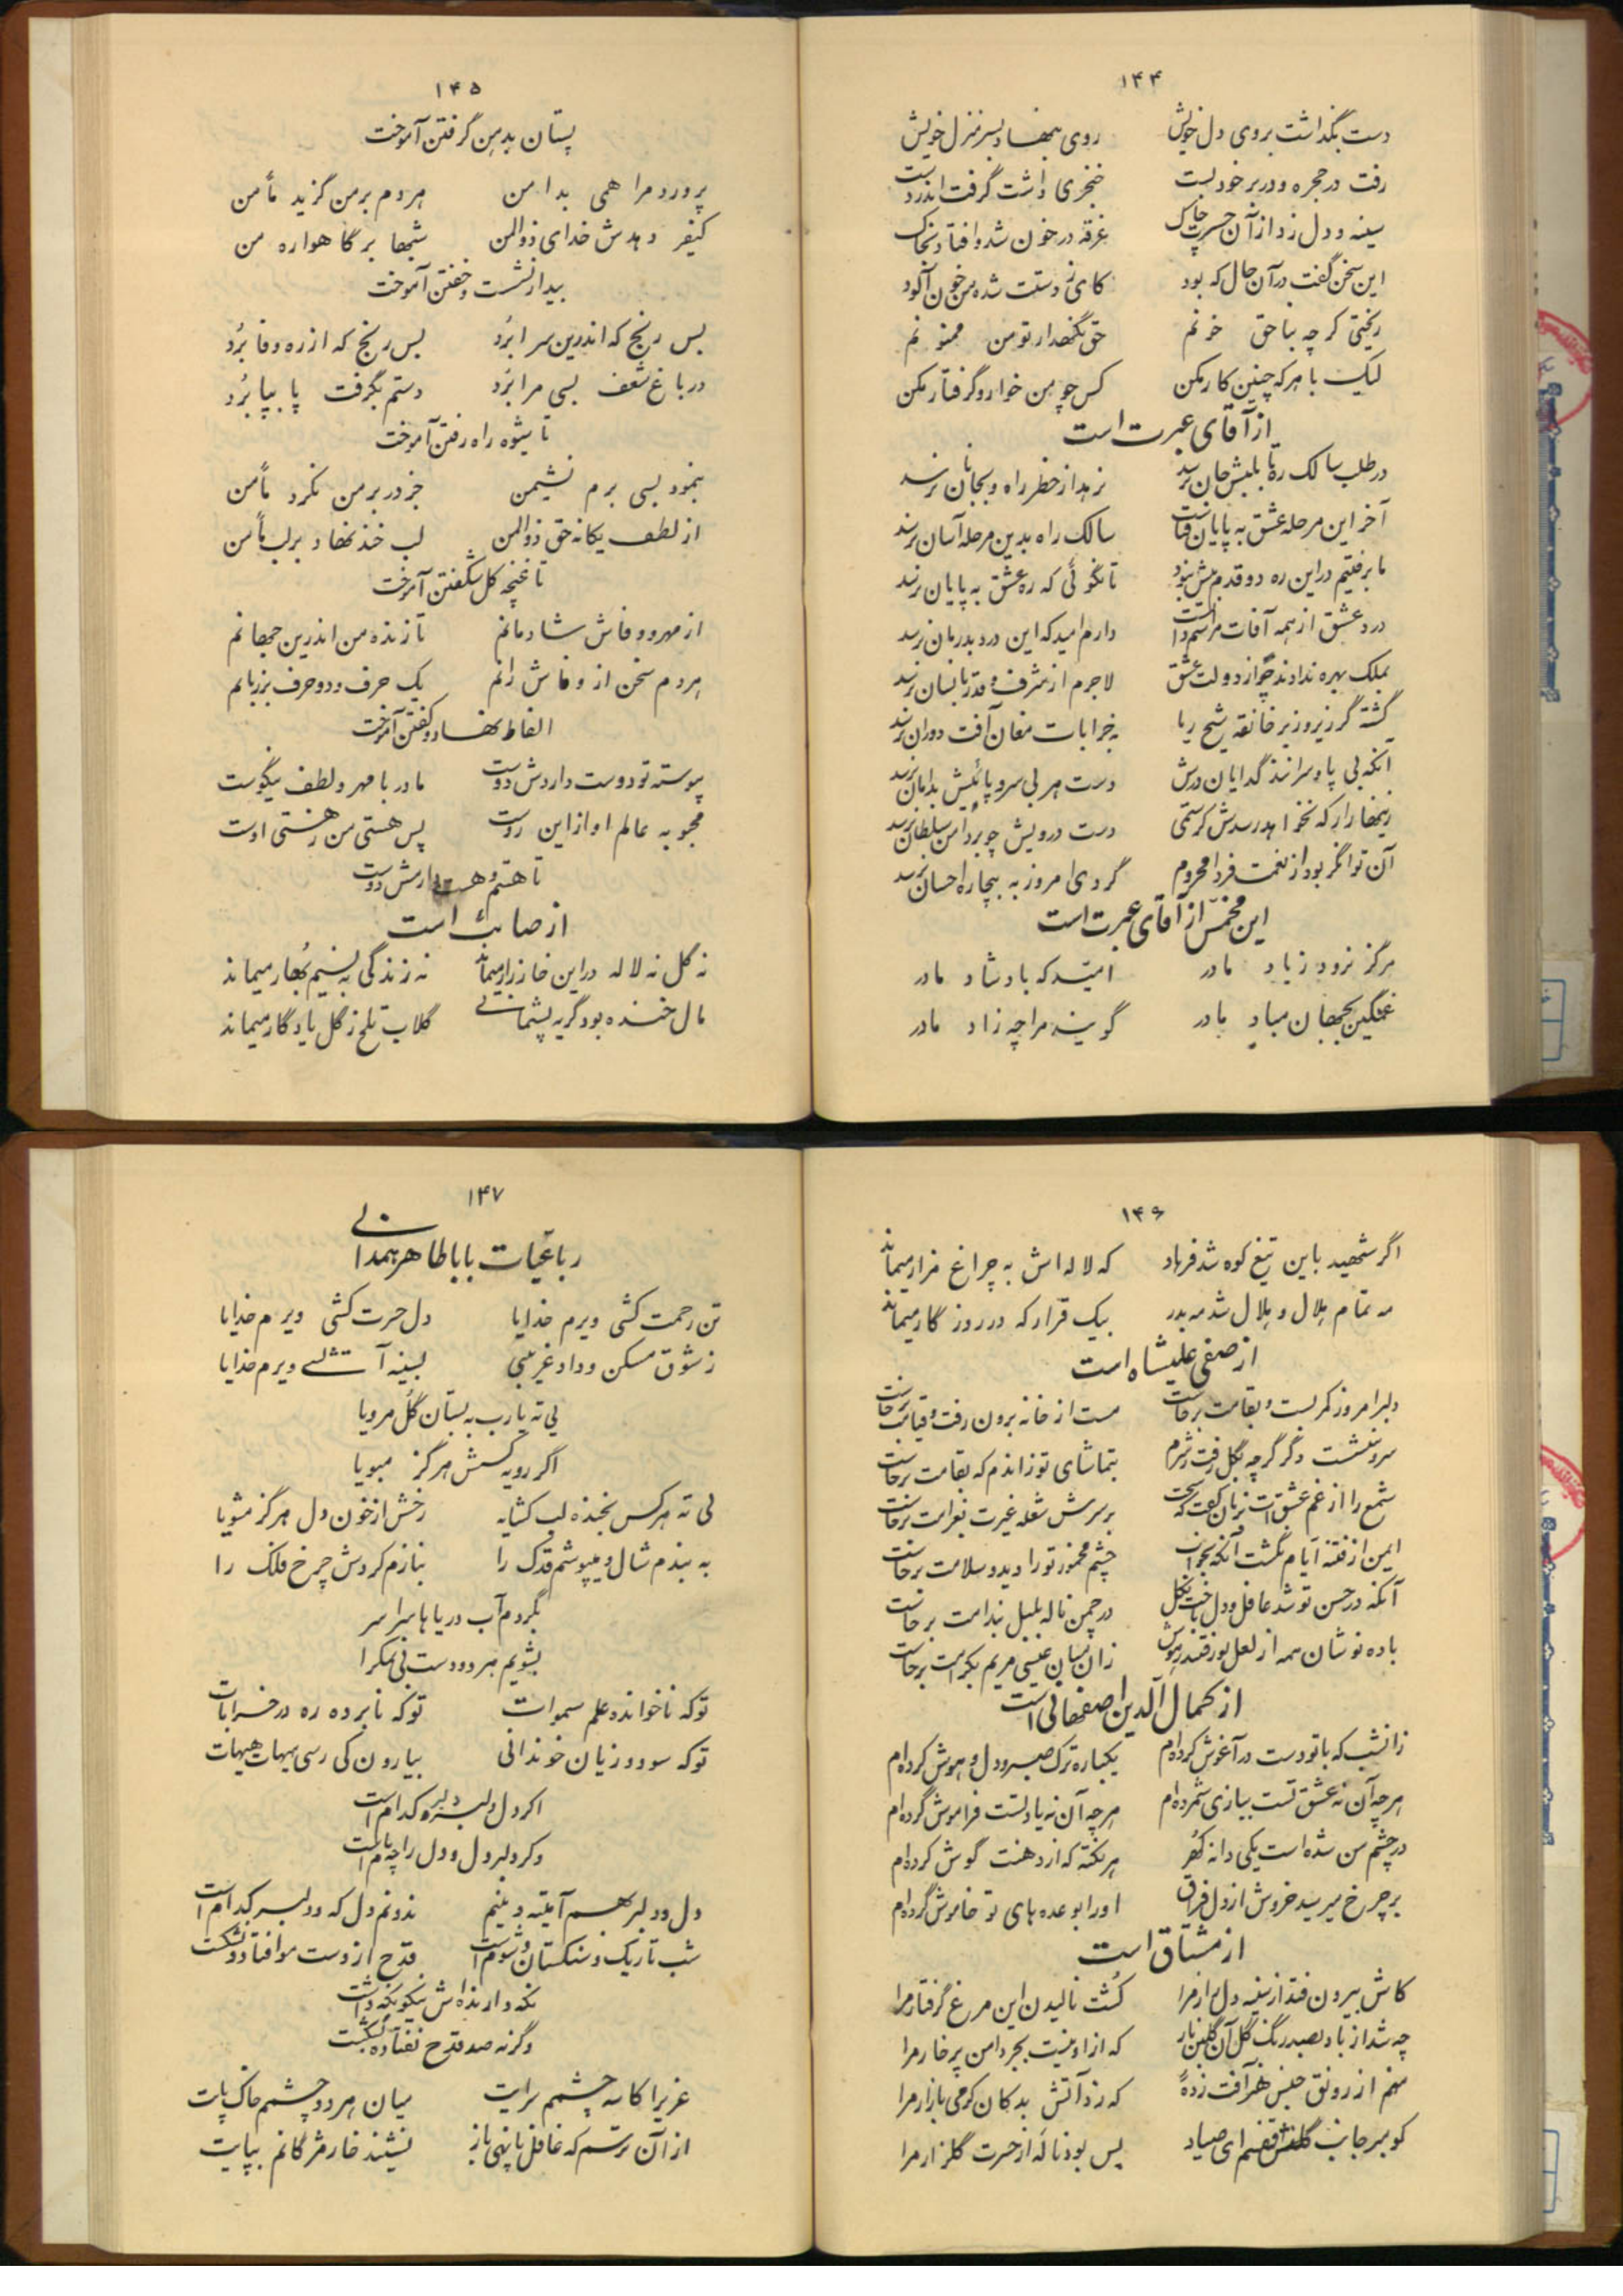 ۱۴۴
دست بگذاشت بروی دل خویش روی بنهاد بسر منزل خویش
رفت در حجره و در بر خود بست خنجری داشت گرفت اندر دست
سینه و دل زد از آن حسرت چاک غرقه در خون شد و افتاد بخاک
این سخن گفت در آن حال که بود کای ز دستت شده من خون آلود
ریختی گرچه بناحق خونم حق نگهدار تو من ممنونم
لیک با هر که چنین کار مکن کس چو من خوار و گرفتار مکن
از آقای عبرت است
در طلب سالک ره تا بلبش جان نرسد نرهد از خطر راه و بجانان نرسد
آخر این مرحله عشق به پایان نتافت سالک راه بدین مرحله آسان نرسد
ما برفتیم در این ره دو قدم بیش نبود تا نگوئی که ره عشق به پایان نرسد
درد عشق از همه آفات مرا سد دارم امید که این درد بدرمان نرسد
بملک بهره ندادند چو از دولت عشق لاجرم از شرف و قدر بانسان نرسد
گشته گر زیر و زبر خانقه شیخ ریا بخرابات مغان آفت دوران نرسد
آنکه بی پا و سرانند گدایان درش دست هر بی سر و پائیش بدامان نرسد
زینهار ار که نخواهد رسدش کرستمی دست درویش چو بر دامن سلطان نرسد
آن توانگر بود از نعمت فردا محروم گر وی امروز به بیچاره احسان نرسد
این مخمس از آقای عبرت است
هرگز نرود ز یاد مادر امید که باد شاد مادر
غمگین بجهان مباد مادر گویند مرا چه زاد مادر
۱۴۵
پستان بدهن گرفتن آموخت
پرورد مرا همی بدامن هر دم بر من گزید مأمن
کیفر دهدش خدای ذوالمن شبها بر گاهواره من
بیدار نشست و خفتن آموخت
بس رنج که اندرین سرا برد بس رنج که از ره وفا برد
در باغ شعف بسی مرا برد دستم بگرفت پا بپا برد
تا شیوه راه رفتن آموخت
بنمود بسی برم نشیمن جز در بر من نکرد مأمن
از لطف یگانه حق ذوالمن لب خند نهاد بر لب من
تا غنچه گل شکفتن آموخت
از مهر و وفاش شادمانم تا زنده من اندرین جهانم
هر دم سخن از وفاش رانم یک حرف و دو حرف بر زبانم
الفاظ نهاد و گفتن آموخت
پیوسته تو دوست داردش دوست مادر با مهر و لطف نیکوست
محبوبه عالم او از این روست پس هستی من ز هستی اوست
تا هستم و هست دارمش دوست
از صائب است
نه گل نه لاله در این خارزار میماند نه زندگی به نسیم بهار میماند
مال خنده بود گریه پشیمانی گلاب تلخ ز گل یادگار میماند
۱۴۶
اگر شهید باین تیغ کوه شد فرهاد که لاله اش به چراغ مزار میماند
مه تمام هلال و هلال شد مه بدر بیک قرار که در روزگار میماند
از صفی علیشاه است
دلبر امروز کمر بست و بقامت برخاست مست از خانه برون رفت و قیامت برخاست
سرو ننشست دگر گرچه بگل رفت ز شرم بتماشای تو ز اندم که بقامت برخاست
شمع را از غم عشقت بزبان نکته که سخت بر سرش شعله غیرت بغرامت برخاست
ایمن از فتنه ایام نگشت آنکه بخواب چشم مخمور تو را دید و سلامت برخاست
آنکه در حسن تو شد غافل و دل باخت بگل در چمن ناله بلبل بندامت برخاست
باده نوشان همه از لعل تو رفتند ز هوش زان میان عیسی مریم بکرامت برخاست
از کمال الدین اصفهانی است
زانشب که با تو دست در آغوش کرده‌ام یکباره ترک صبر و دل و هوش کرده‌ام
هر چه آن نه عشق تست ببازی شمرده‌ام هر چه آن نه یاد تست فراموش کرده‌ام
در چشم من شده است یکی دانه گهر هر نکته که از دهنت گوش کرده‌ام
بر چرخ میرسید خروش از دل فراق او را بوعده های تو خاموش کرده‌ام
از مشتاق است
کاش بیرون فتد از سینه دل زار مرا کشت نالیدن این مرغ گرفتار مرا
چه شد از باد بصد رنگ گل آن گلبن ناز که از او نیست بجز دامن پر خار مرا
منم از رونق جنس هنر آفت زده که زد آتش بدکان گرمی بازار مرا
کو بسر جانب گلشن قفسم ای صیاد بس بود ناله از حسرت گلزار مرا
۱۴۷
رباعیات بابا طاهر همدانی
تن رحمت کشی ویرم خدایا دل حسرت کشی ویرم خدایا
ز شوق مسکن و داد غریبی بسینه آتشی ویرم خدایا
بی ته یارب به بستان گل مرویا
اگر رویه کسش هرگز مبویا
بی ته هر کس بخنده لب گشایه رخش از خون دل هرگز مشویا
به بندم شال و میپوشم قدک را بنازم گردش چرخ فلک را
بگردم آب دریاها سراسر
بشویم هر دو دست بی نمک را
تو که ناخوانده علم سموات تو که نابرده ره در خرابات
تو که سود و زیان خود ندانی بیارون کی رسی هیهات هیهات
اگر دل دلبر و دلبر کدام است
وگر دلبر دل و دل را چه نام است
دل و دلبر بهم آمیته وینم ندونم دل که و دلبر کدام است
شب تاریک و سنگستان و مست قدح از دست مو افتاد و نشکست
نگه دارنده اش نیکو نگه داشت
وگرنه صد قدح نفتاده بشکست
عزیزا کاسه چشمم سرایت میان هر دو چشمم خاک پایت
از آن ترسم که غافل پا نهی باز نشیند خار مژگانم بپایت